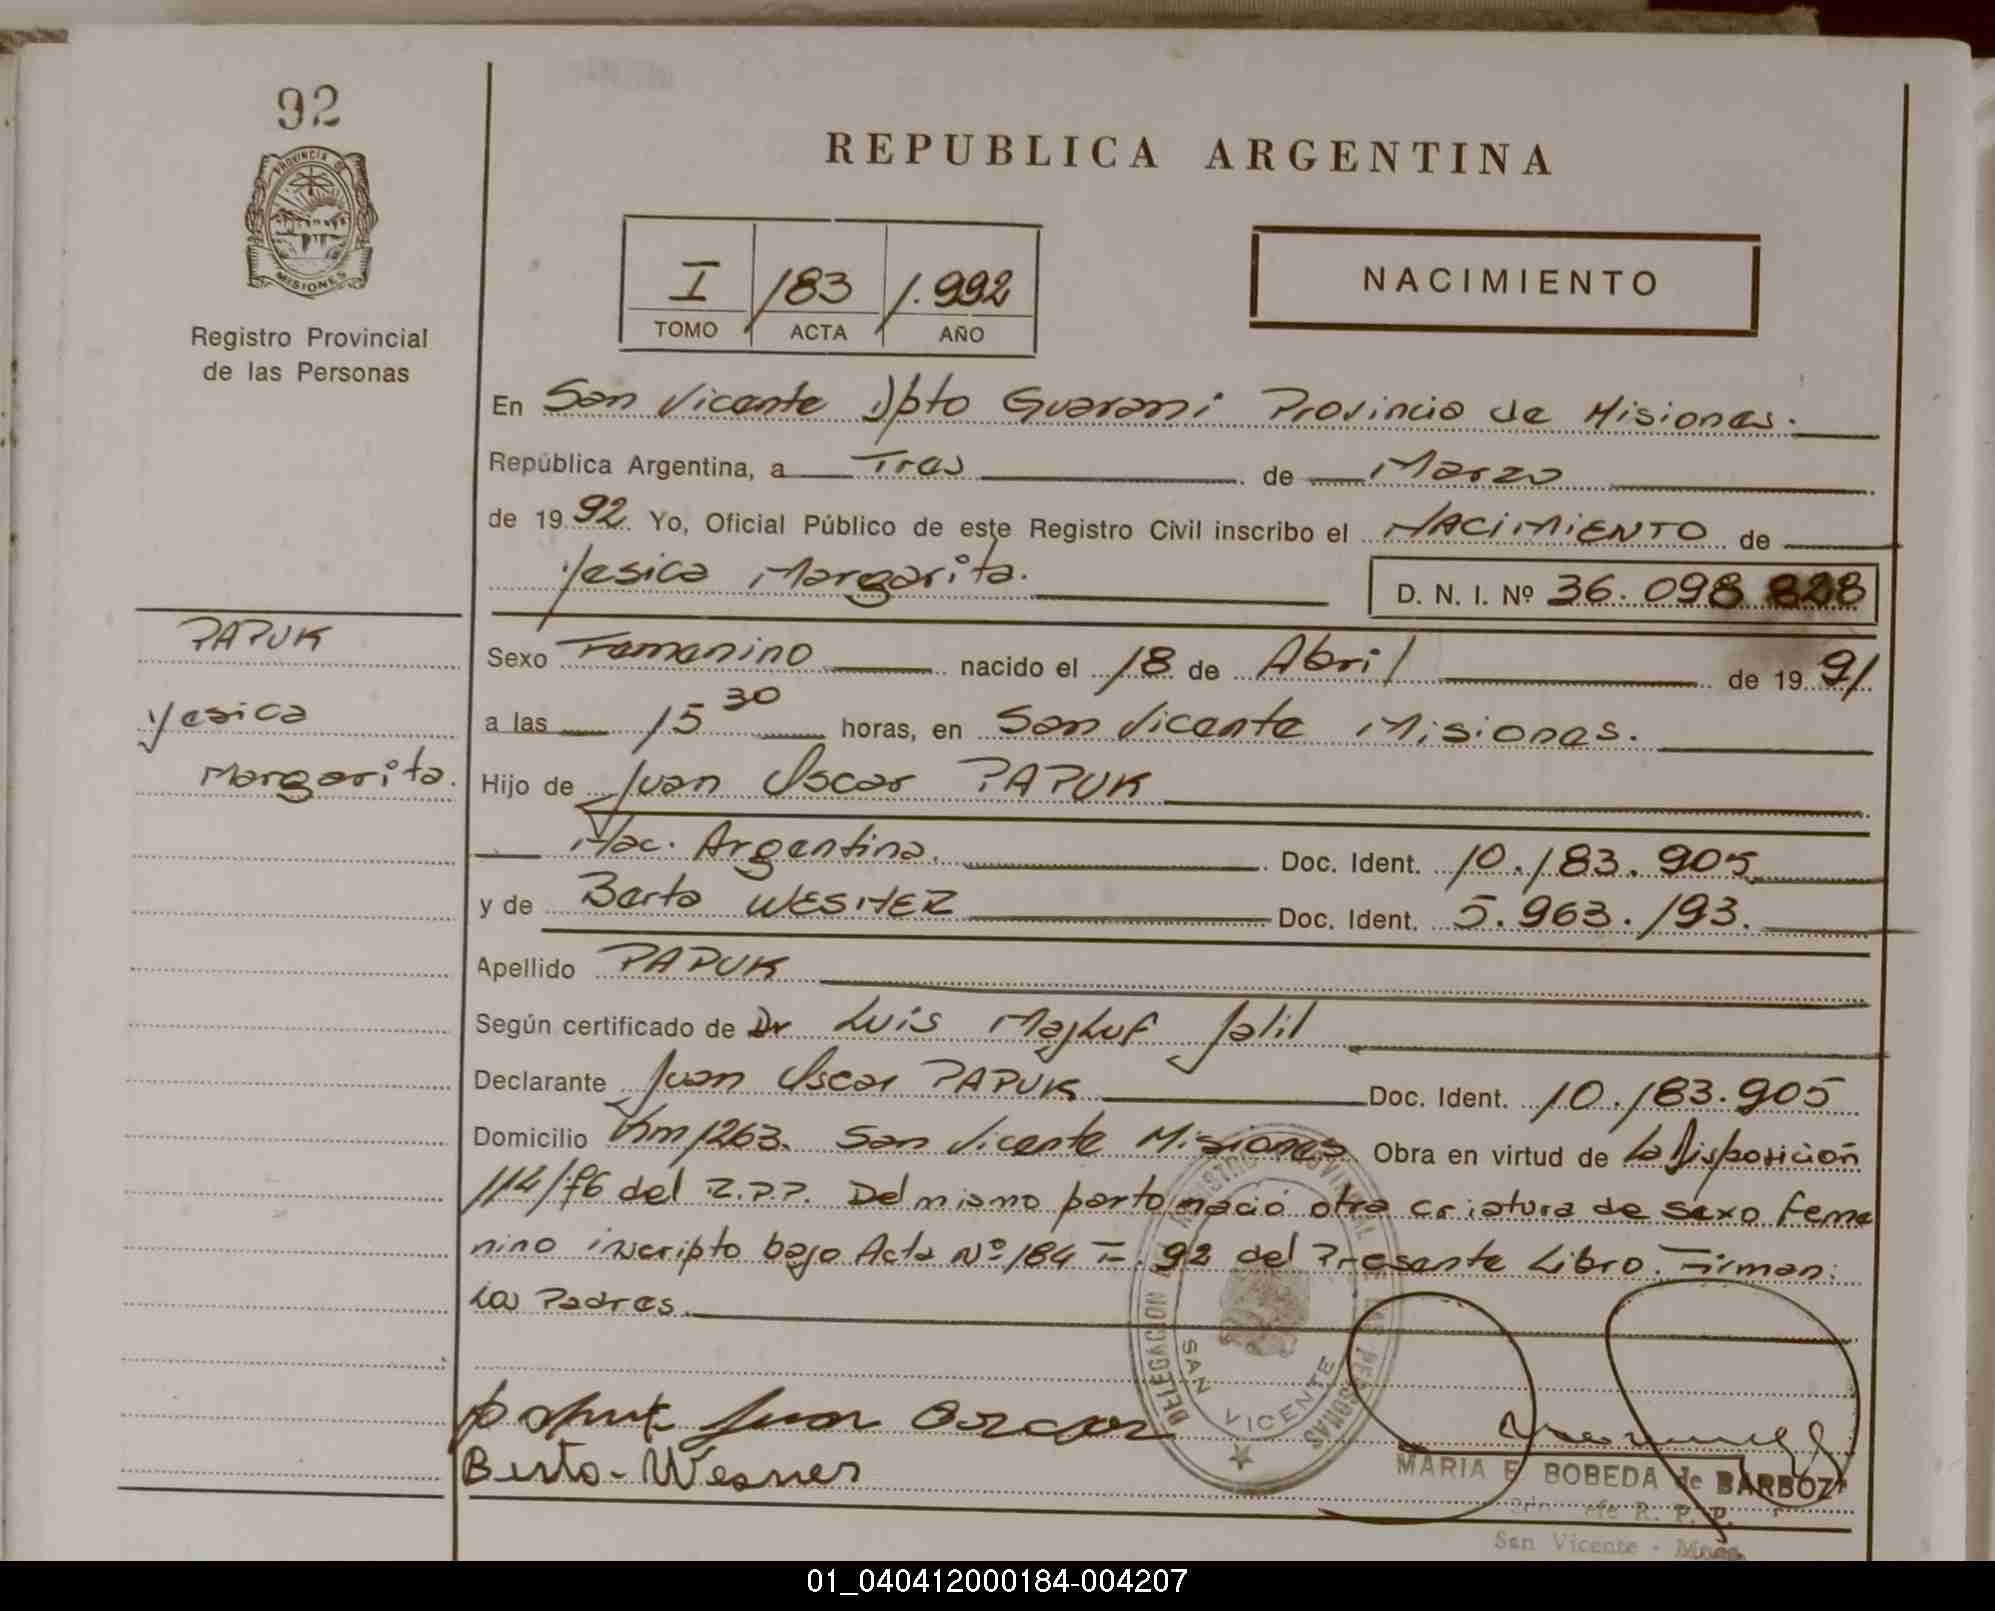 92
PROVINCIA DE
MISIONES
Registro Provincial
de las Personas
REPUBLICA ARGENTINA
I 183 1.992
TOMO ACTA AÑO
NACIMIENTO
En San Vicente Dpto Guarani Provincia de Misiones.
República Argentina, a Tres de Marzo
de 1992 Yo, Oficial Público de este Registro Civil inscribo el NACIMIENTO de
Yesica Margarita.
D. N. I. Nº 36.098 828
PAPUK
Yesica
Margarita.
Sexo Femenino nacido el 18 de Abril de 1991
a las 15 30 horas, en San Vicente Misiones.
Hijo de Juan Oscar PAPUK
Nac. Argentina. Doc. Ident. 10.183.905
y de Berta WESNER Doc. Ident. 5.963.193.
Apellido PAPUK
Según certificado de Dr Luis Majluf Jalil
Declarante Juan Oscar PAPUK Doc. Ident. 10.183.905
Domicilio Km 1263. San Vicente Misiones Obra en virtud de la Disposición
114/76 del R.P.P. Del mismo parto nació otra criatura de sexo feme
nino inscripto bajo Acta Nº 184 I 92 del Presente Libro. Firman:
los Padres.
DELEGACION REGISTRO PROVINCIAL DE LAS PERSONAS
SAN VICENTE
Juan Oscar
Berta Wesner
MARIA E BOBEDA de BARBOZA
R. P. P.
San Vicente - Mnes
01_040412000184-004207